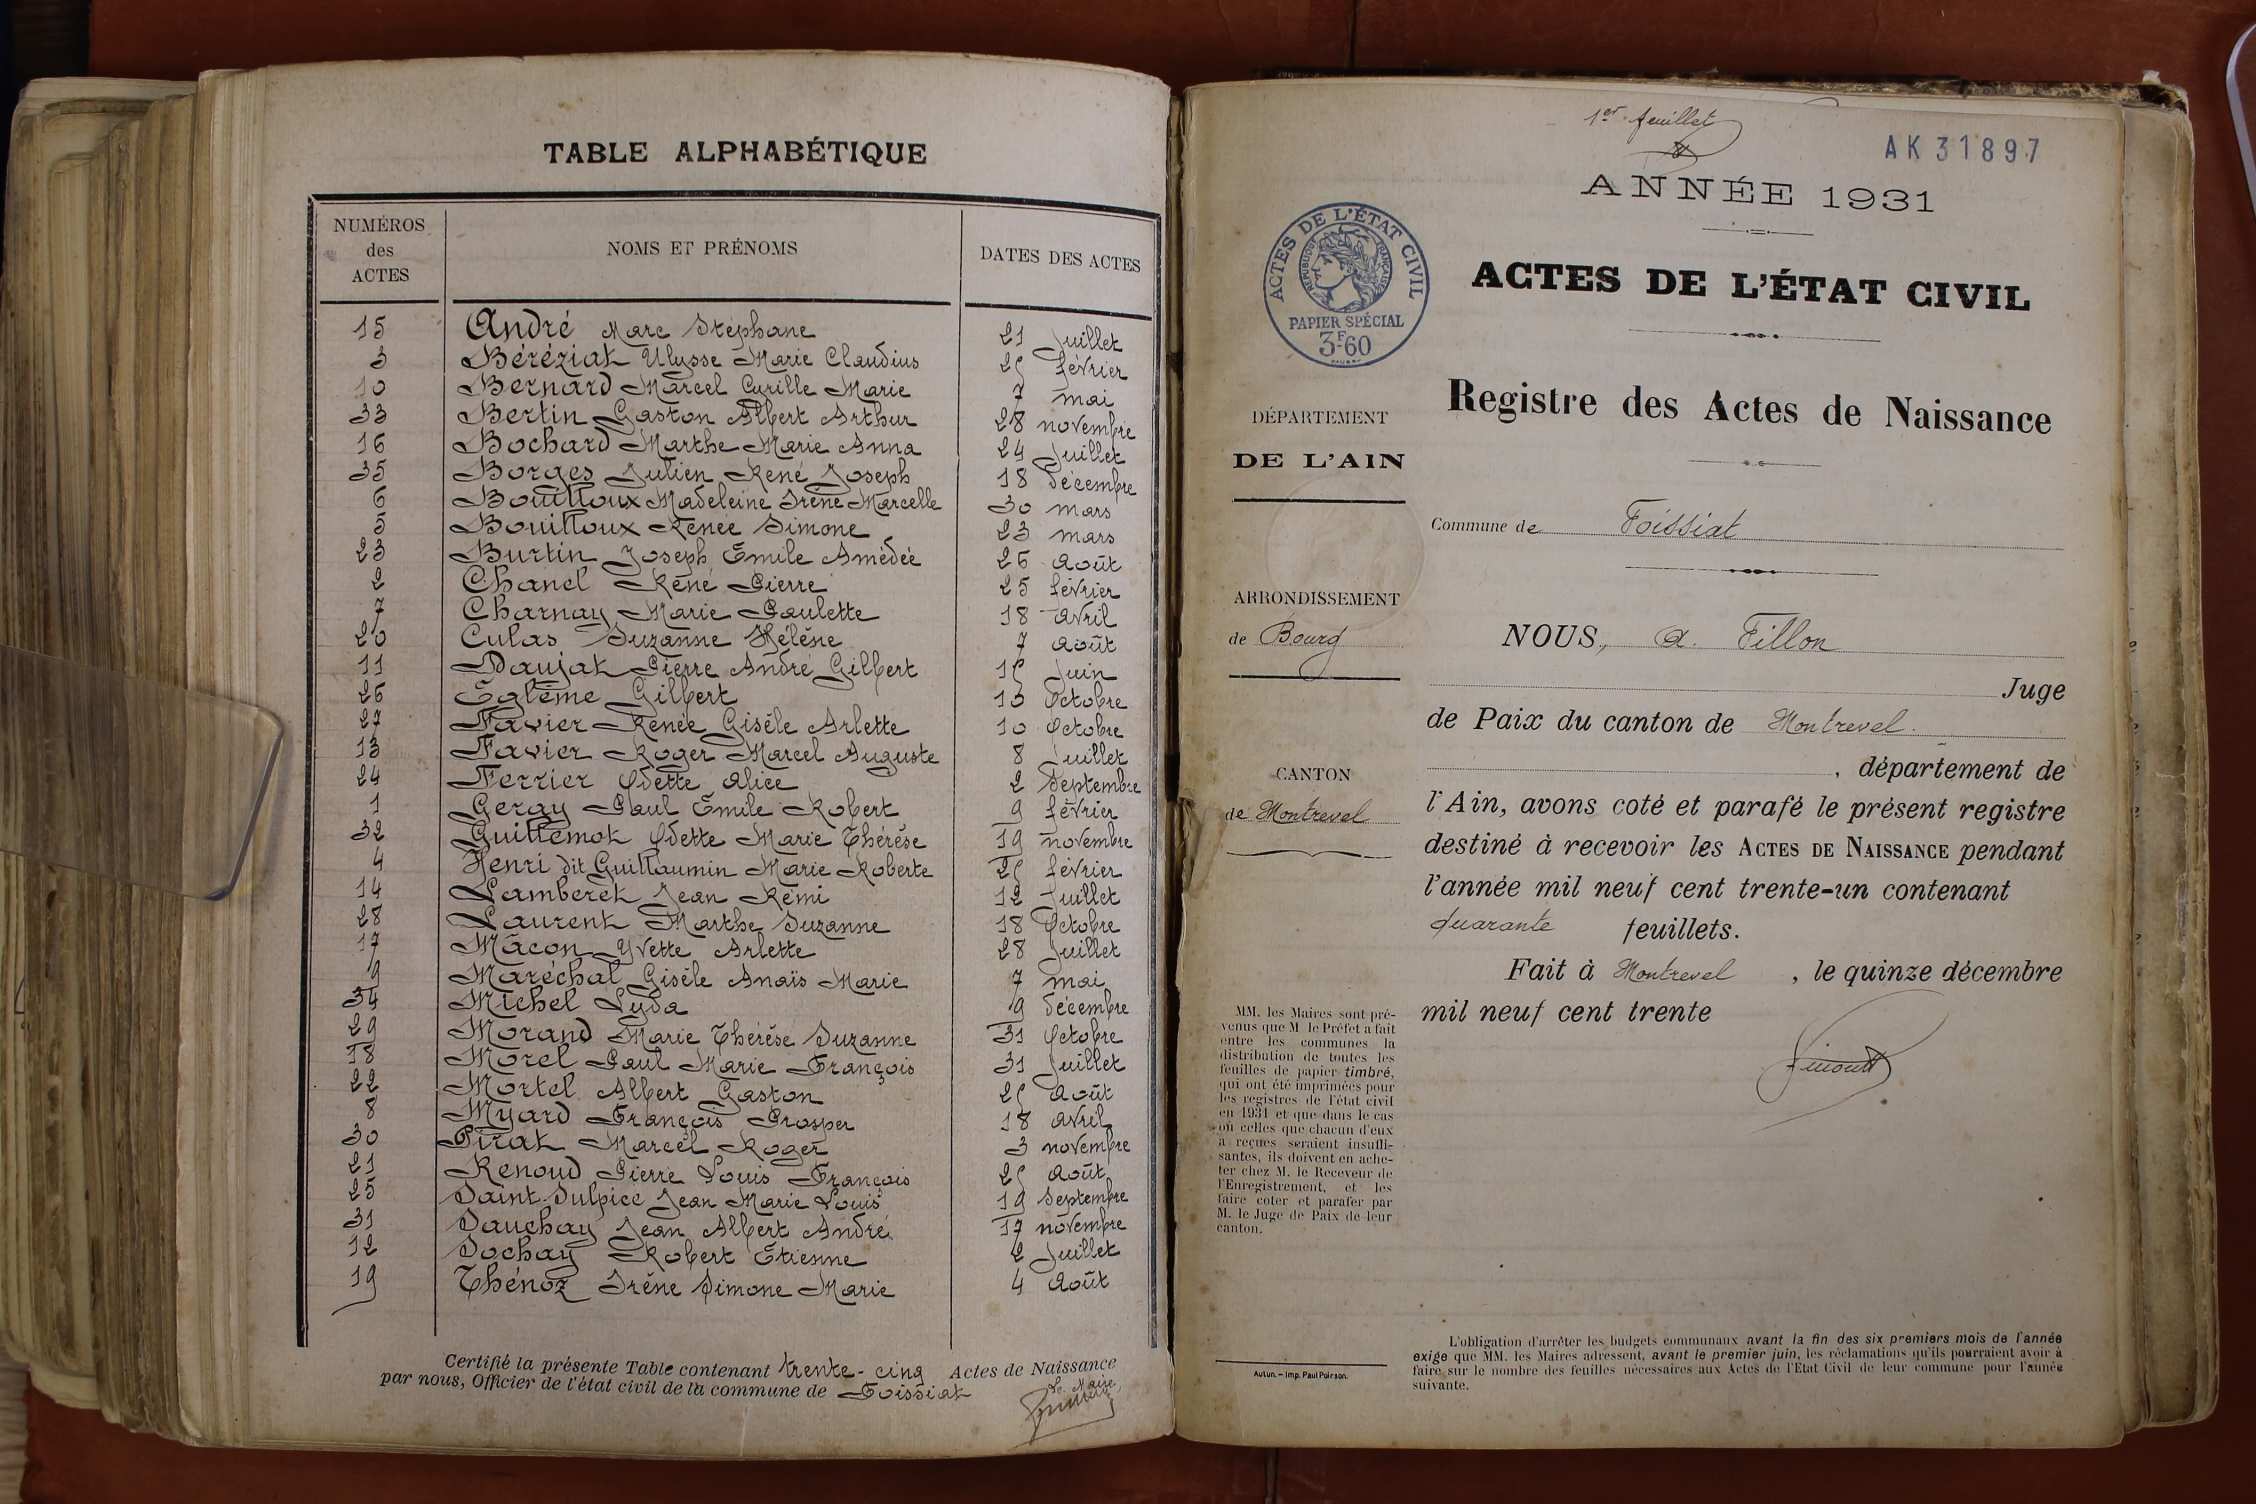 TABLE ALPHABÉTIQUE
NUMÉROS des ACTES NOMS ET PRÉNOMS DATES DES ACTES
15 André Marc Stéphane 21 Juillet
3 Béréziat Ulysse Marie Claudius 25 février
10 Bernard Marcel Cyrille Marie 7 mai
33 Bertin Gaston Albert Arthur 28 novembre
16 Bochard Marthe Marie Anna 24 Juillet
35 Borges Julien René Joseph 18 décembre
6 Bouilloux Madeleine Irène Marcelle 30 mars
5 Bouilloux Renée Simone 23 mars
23 Burtin Joseph Émile Amédée 26 Août
2 Chanel René Pierre 25 février
7 Charnay Marie Paulette 18 avril
20 Culas Suzanne Hélène 7 août
11 Daujat Pierre André Gilbert 15 Juin
26 Églème Gilbert 13 Octobre
27 Favier Renée Gisèle Arlette 10 Octobre
13 Favier Roger Marcel Auguste 8 Juillet
24 Ferrier Odette Alice 2 Septembre
1 Geray Paul Émile Robert 9 février
32 Guillemot Odette Marie Thérèse 19 novembre
4 Henri dit Guillaumin Marie Roberte 25 février
14 Lamberet Jean Rémi 12 Juillet
28 Laurent Marthe Suzanne 18 Octobre
17 Mâcon Yvette Arlette 28 Juillet
9 Maréchal Gisèle Anaïs Marie 7 mai
34 Michel Lyda 9 décembre
29 Morand Marie Thérèse Suzanne 31 Octobre
18 Morel Paul Marie François 31 Juillet
22 Mortel Albert Gaston 25 Août
8 Myard François Prosper 18 avril
30 Pirat Marcel Roger 3 novembre
21 Renoud Pierre Louis François 25 Août
25 Saint-Sulpice Jean Marie Louis 19 Septembre
31 Sauchay Jean Albert André 17 novembre
12 Sochay Robert Étienne 2 Juillet
19 Thénoz Irène Simone Marie 4 Août
Certifié la présente Table contenant trente-cinq Actes de Naissance
par nous, Officier de l'état civil de la commune de Foissiat
Le Maire,
1er feuillet
AK 31897
ANNÉE 1931
ACTES DE L'ÉTAT CIVIL
RÉPUBLIQUE FRANÇAISE
PAPIER SPÉCIAL
3F60
ACTES DE L'ÉTAT CIVIL
Registre des Actes de Naissance
DÉPARTEMENT
DE L'AIN
Commune de Foissiat
ARRONDISSEMENT
de Bourg
CANTON
de Montrevel
NOUS, A. Fillon
Juge
de Paix du canton de Montrevel.
, département de
l'Ain, avons coté et parafé le présent registre
destiné à recevoir les ACTES DE NAISSANCE pendant
l'année mil neuf cent trente-un contenant
quarante feuillets.
Fait à Montrevel, le quinze décembre
mil neuf cent trente
MM. les Maires sont pré-
venus que M le Préfet a fait
entre les communes la
distribution de toutes les
feuilles de papier timbré,
qui ont été imprimées pour
les registres de l'état civil
en 1931 et que dans le cas
où celles que chacun d'eux
a reçues seraient insuffi-
santes, ils doivent en ache-
ter chez M. le Receveur de
l'Enregistrement, et les
faire coter et parafer par
M. le Juge de Paix de leur
canton.
Autun. — Imp. Paul Poirson.
L'obligation d'arrêter les budgets communaux avant la fin des six premiers mois de l'année
exige que MM. les Maires adressent, avant le premier juin, les réclamations qu'ils pourraient avoir à
faire sur le nombre des feuilles nécessaires aux Actes de l'Etat Civil de leur commune pour l'année
suivante.